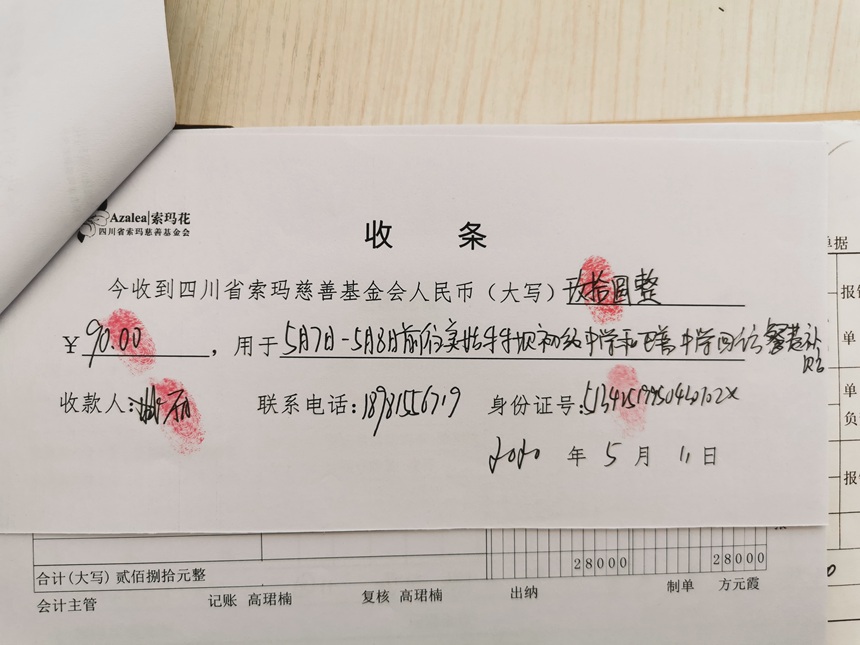 Azalea|索玛花
四川省索玛慈善基金会
收 条
今收到四川省索玛慈善基金会人民币（大写）玖拾圆整
¥90.00，用于5月7日-5月8日前往美姑牛牛坝初级中学和中学回访餐费补贴
收款人： 联系电话：18981556719 身份证号：
2020 年 5 月 11 日
单据
报
单
单
负
报
合计(大写) 贰佰捌拾元整 28000 28000
会计主管 记账 高珺楠 复核 高珺楠 出纳 制单 方元霞